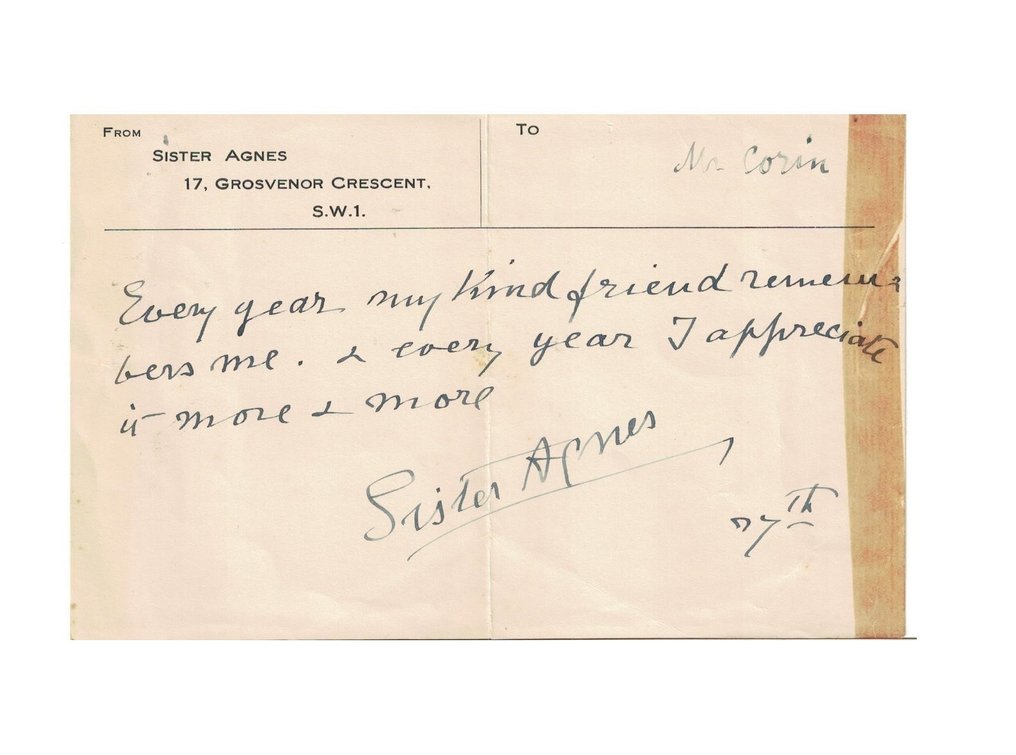 FROM
SISTER AGNES
17, GROSVENOR CRESCENT,
S.W.1.
TO
Mr Corin
Every year my kind friend remem-
bers me. & every year I appreciate
it more & more
Sister Agnes
27th